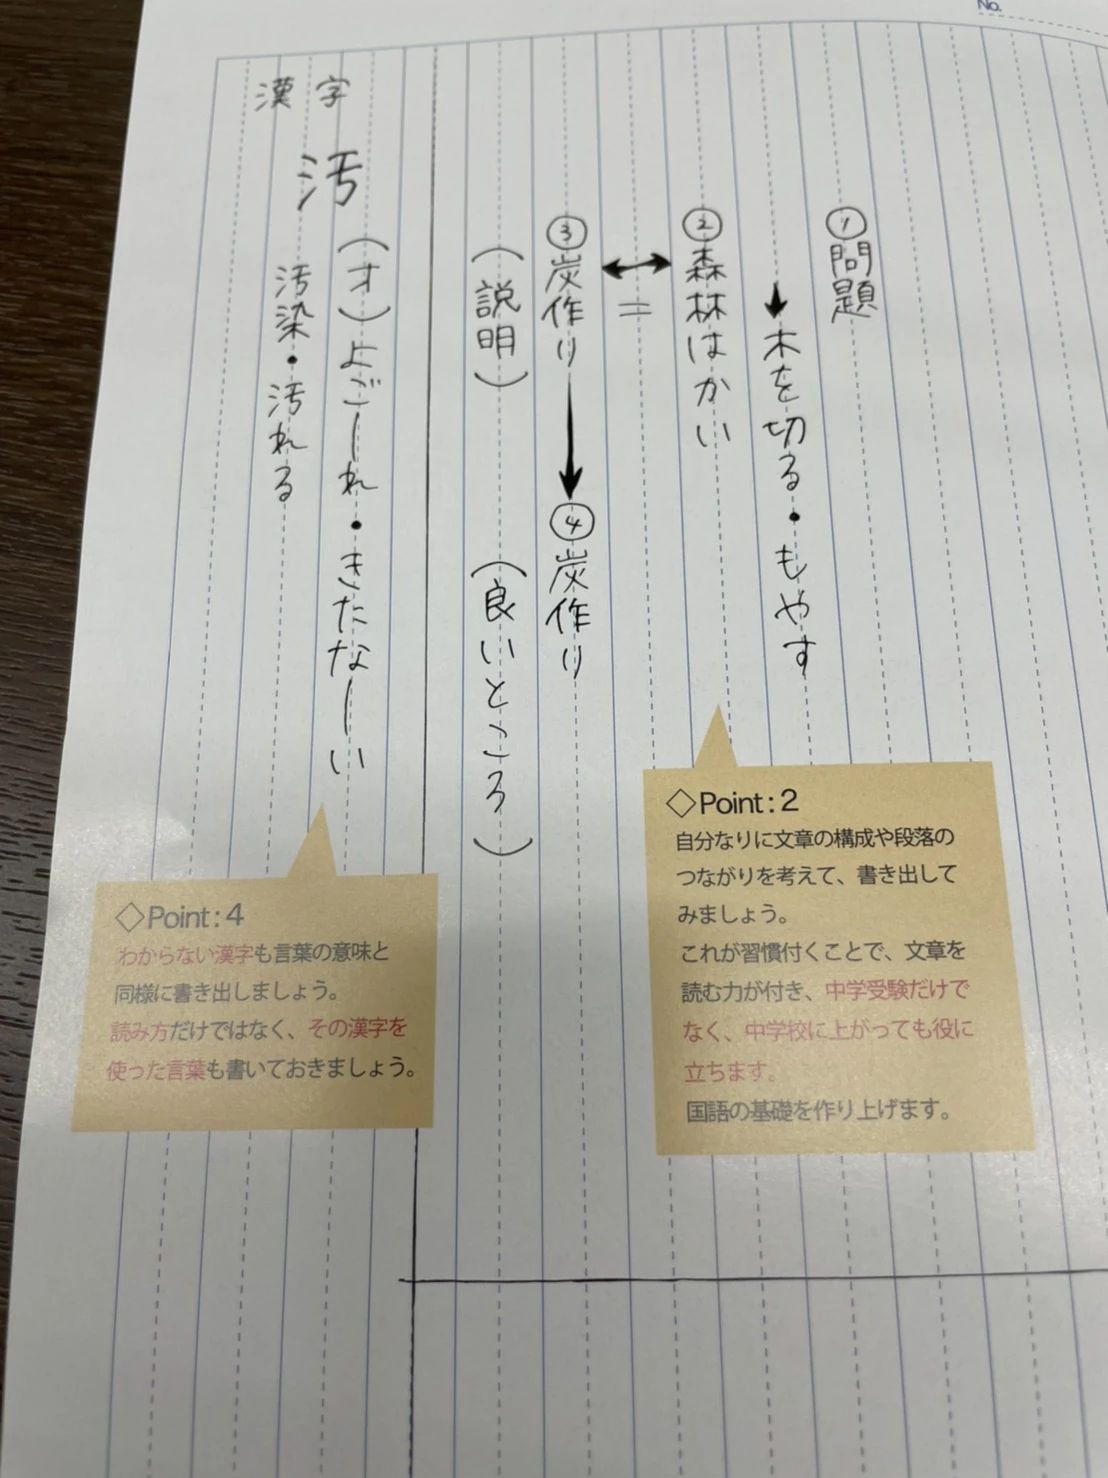 No.
①問題
↓木を切る・もやす
②森林はかい
↔ =
③炭作り→④炭作り
(説明) (良いところ)
漢字
汚
(オ)よごーれ・きたなーい
汚染・汚れる
◇Point:2
自分なりに文章の構成や段落の
つながりを考えて、書き出して
みましょう。
これが習慣付くことで、文章を
読む力が付き、中学受験だけで
なく、中学校に上がっても役に
立ちます。
国語の基礎を作り上げます。
◇Point:4
わからない漢字も言葉の意味と
同様に書き出しましょう。
読み方だけではなく、その漢字を
使った言葉も書いておきましょう。